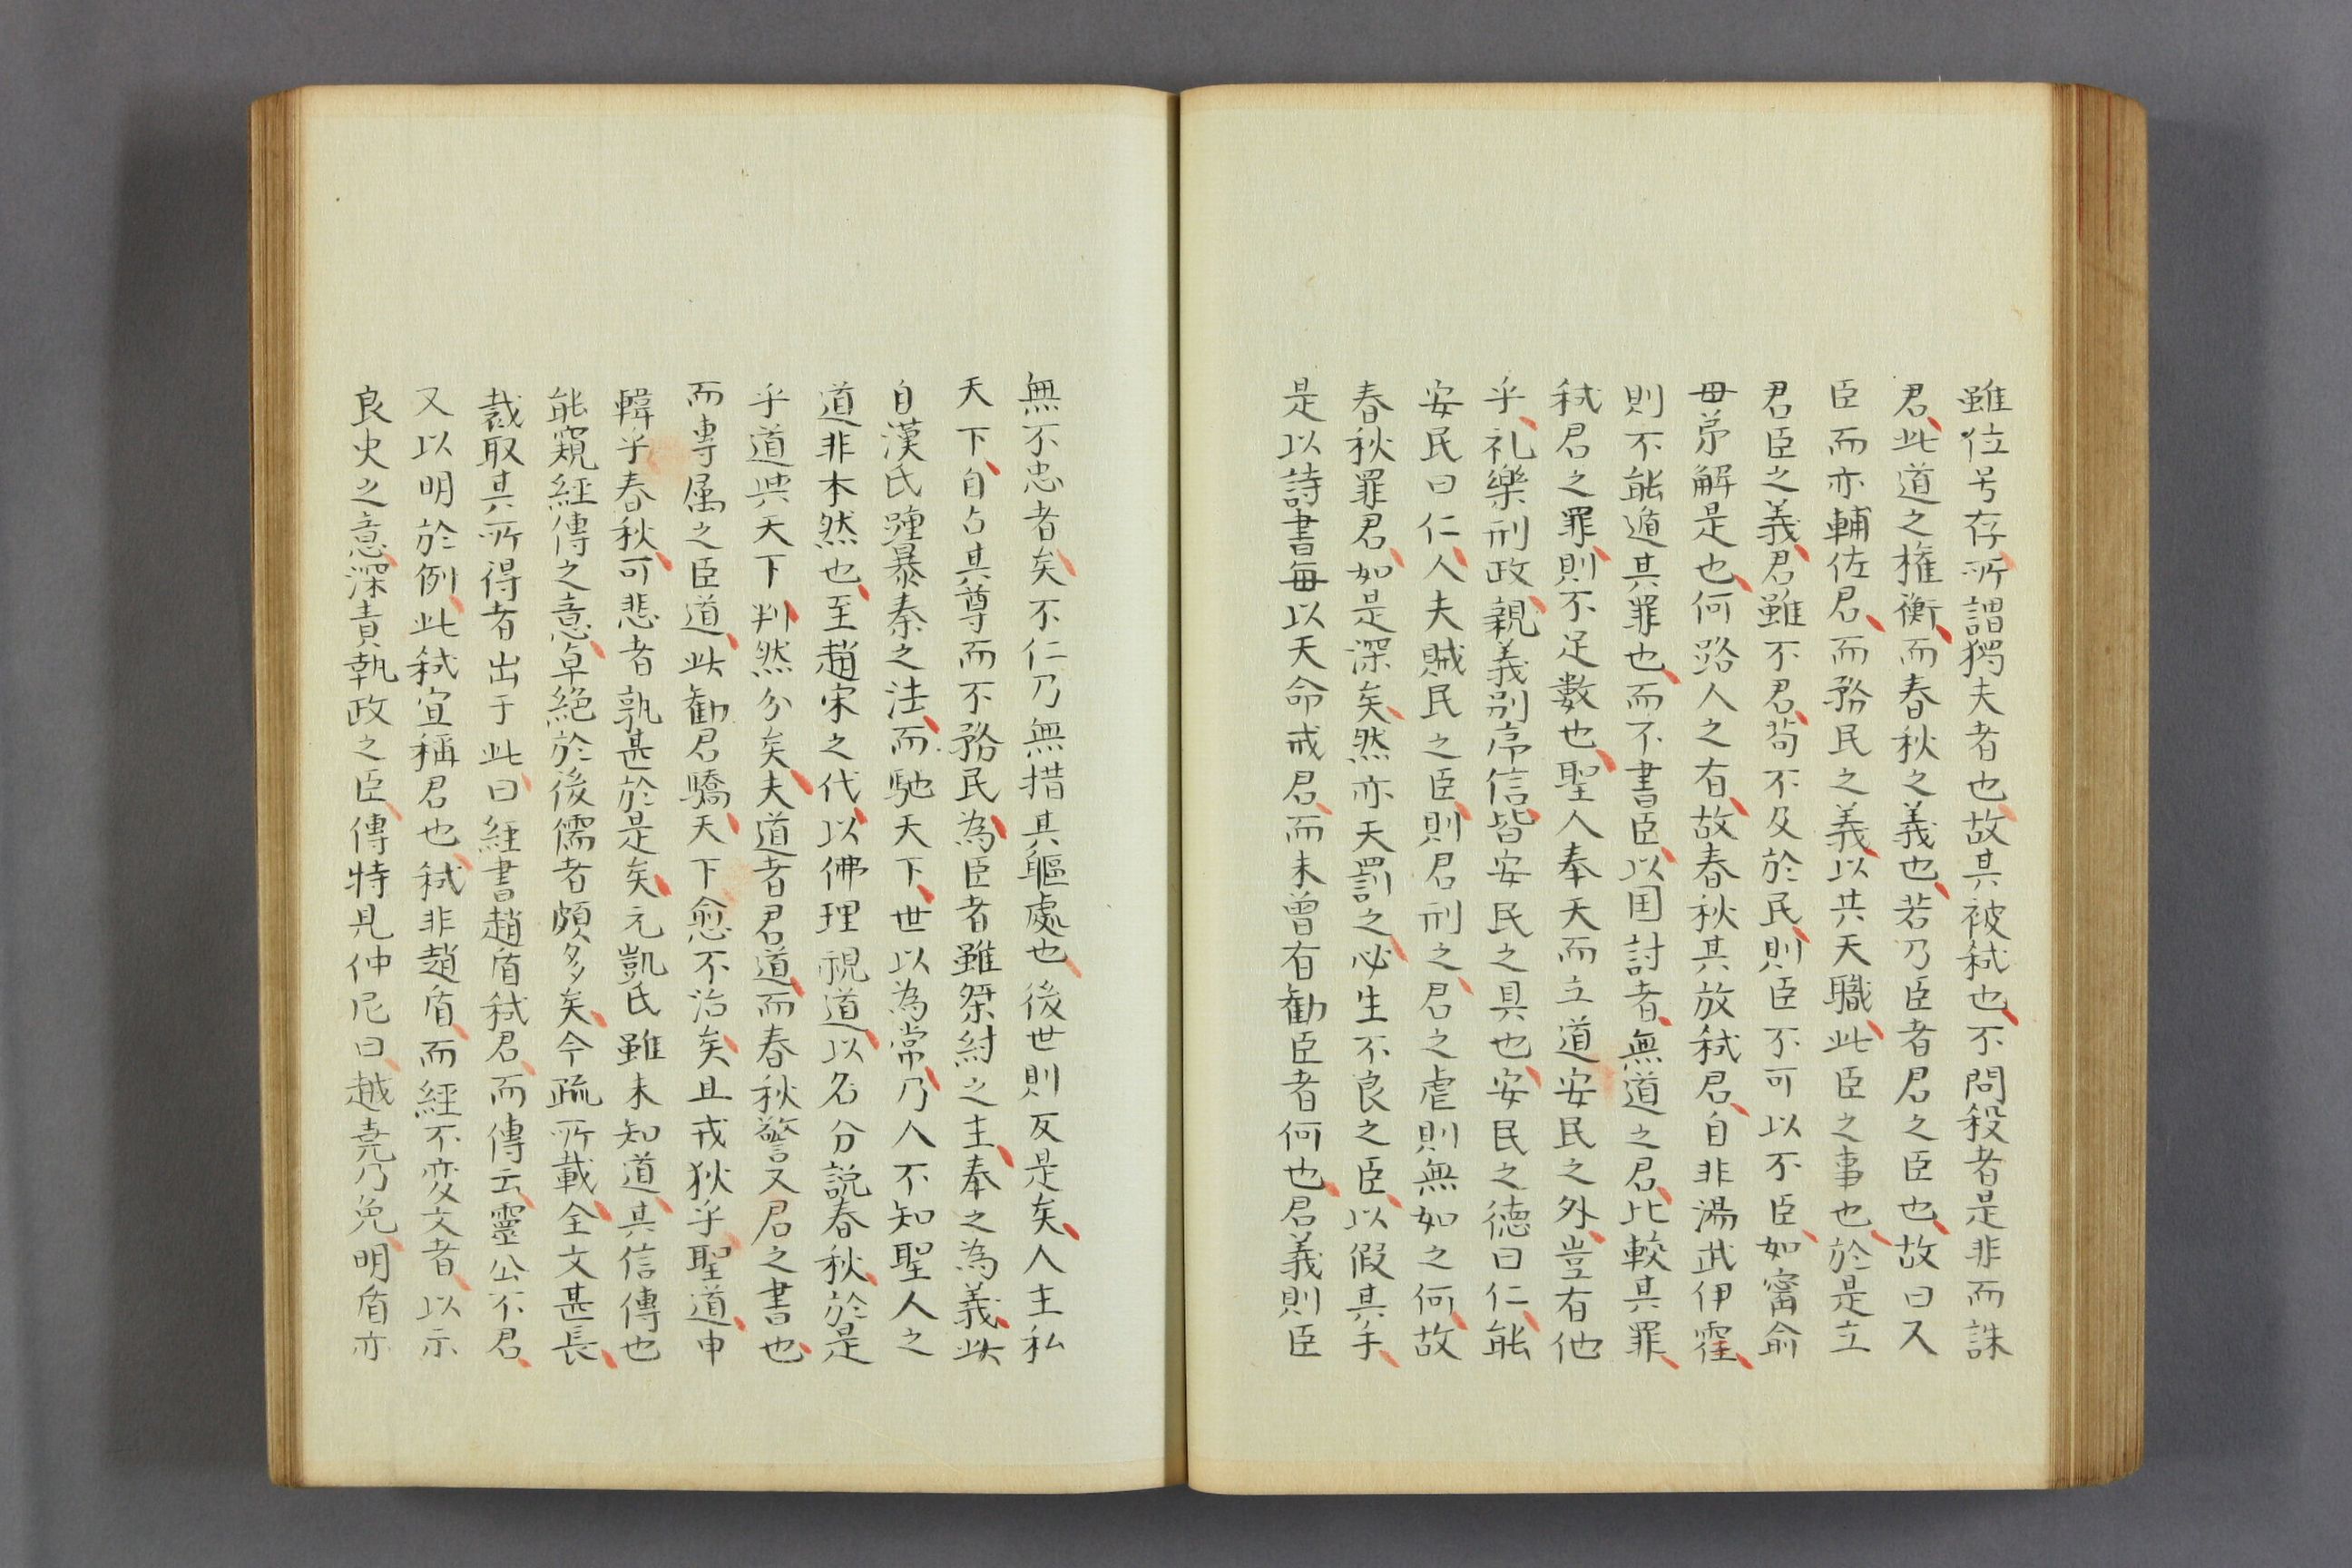 雖位号存、所謂獨夫者也、故其被弑也、不問殺者是非而誅
君、此道之権衡、而春秋之義也、若乃臣者君之臣也、故曰又
臣而亦輔佐君、而務民之義、以共天職、此臣之事也、於是立
君臣之義、君雖不君、苟不及於民、則臣不可以不臣、如甯俞
毋弟解是也、何路人之有、故春秋其放弑君、自非湯武伊霍、
則不能遁其罪也、而不書臣、以国討者、無道之君、比較其罪、
弑君之罪、則不足數也、聖人奉天而立道安民之外、豈有他
乎、礼樂刑政、親義別序信、皆安民之具也、安民之徳曰仁、能
安民曰仁、人夫賊民之臣、則君刑之、君之虐則無如之何、故
春秋罪君、如是深矣、然亦天罰之、必生不良之臣、以假其手、
是以詩書毎以天命戒君、而未曾有勧臣者何也、君義則臣
無不忠者矣、不仁乃無措其軀處也、後世則反是矣、人主私
天下、自占其尊而不務民、為臣者雖桀紂之主、奉之為義、此
自漢氏踵暴秦之法、而馳天下、世以為常、乃人不知聖人之
道非本然也、至趙宋之代、以佛理視道、以名分説春秋、於是
乎道与天下判然分矣、夫道者君道、而春秋警又君之書也、
而專属之臣道、此勧君驕、天下愈不治矣、且戎狄乎聖道、申
韓乎春秋、可悲者孰甚於是矣、元凱氏雖未知道、其信傳也
能窺經傳之意、卓絶於後儒者頗多矣、今疏所載、全文甚長、
裁取其所得者出于此、曰經書趙盾弑君、而傳云、靈公不君、
又以明於例、此弑宜稱君也、弑非趙盾、而經不変文者、以示
良史之意、深責執政之臣、傳特見仲尼曰、越竟乃免、明盾亦